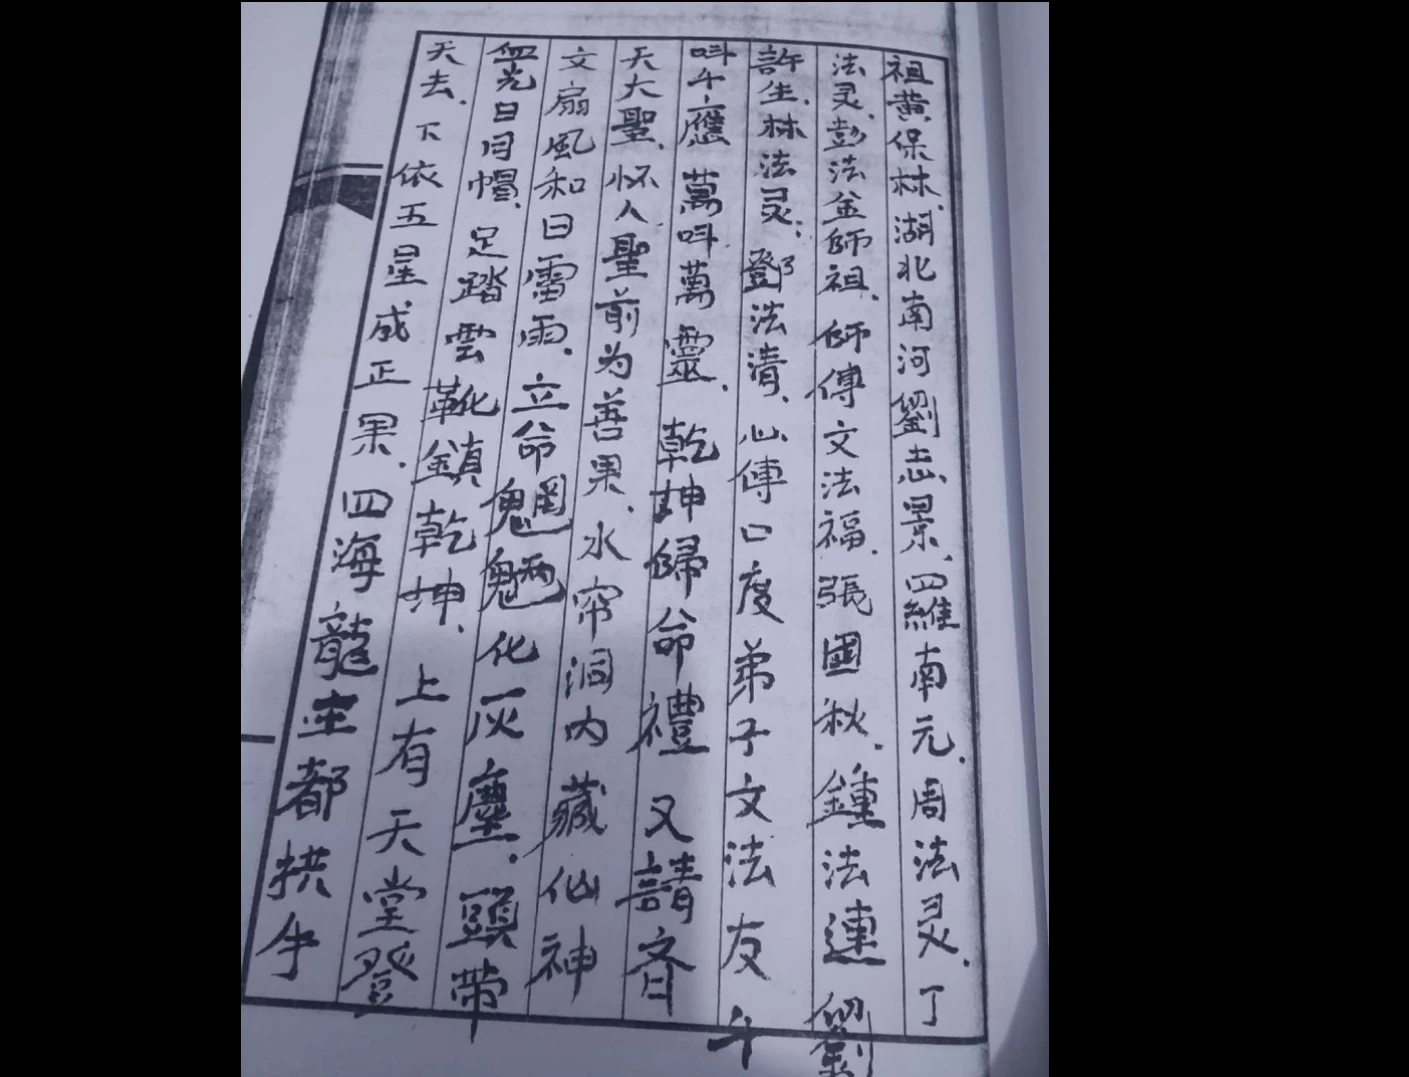 祖黄保林、湖北南河劉志景、四維南元、周法灵、丁
法灵、彭法金師祖、師傅文法福、張國秋、鍾法連劉
許生、林法灵：鄧法清、心傳口度弟子文法友斗
呌斗應萬呌萬靈、乾坤歸命禮又請齊
天大聖、怀人聖前为善果、水帘洞内藏仙神
文扇風和日雷雨、立命魍魎化灰塵、頭带
血光日月帽、足踏雲靴鎮乾坤、上有天堂登
天去、下依五星成正果、四海龍主都拱手